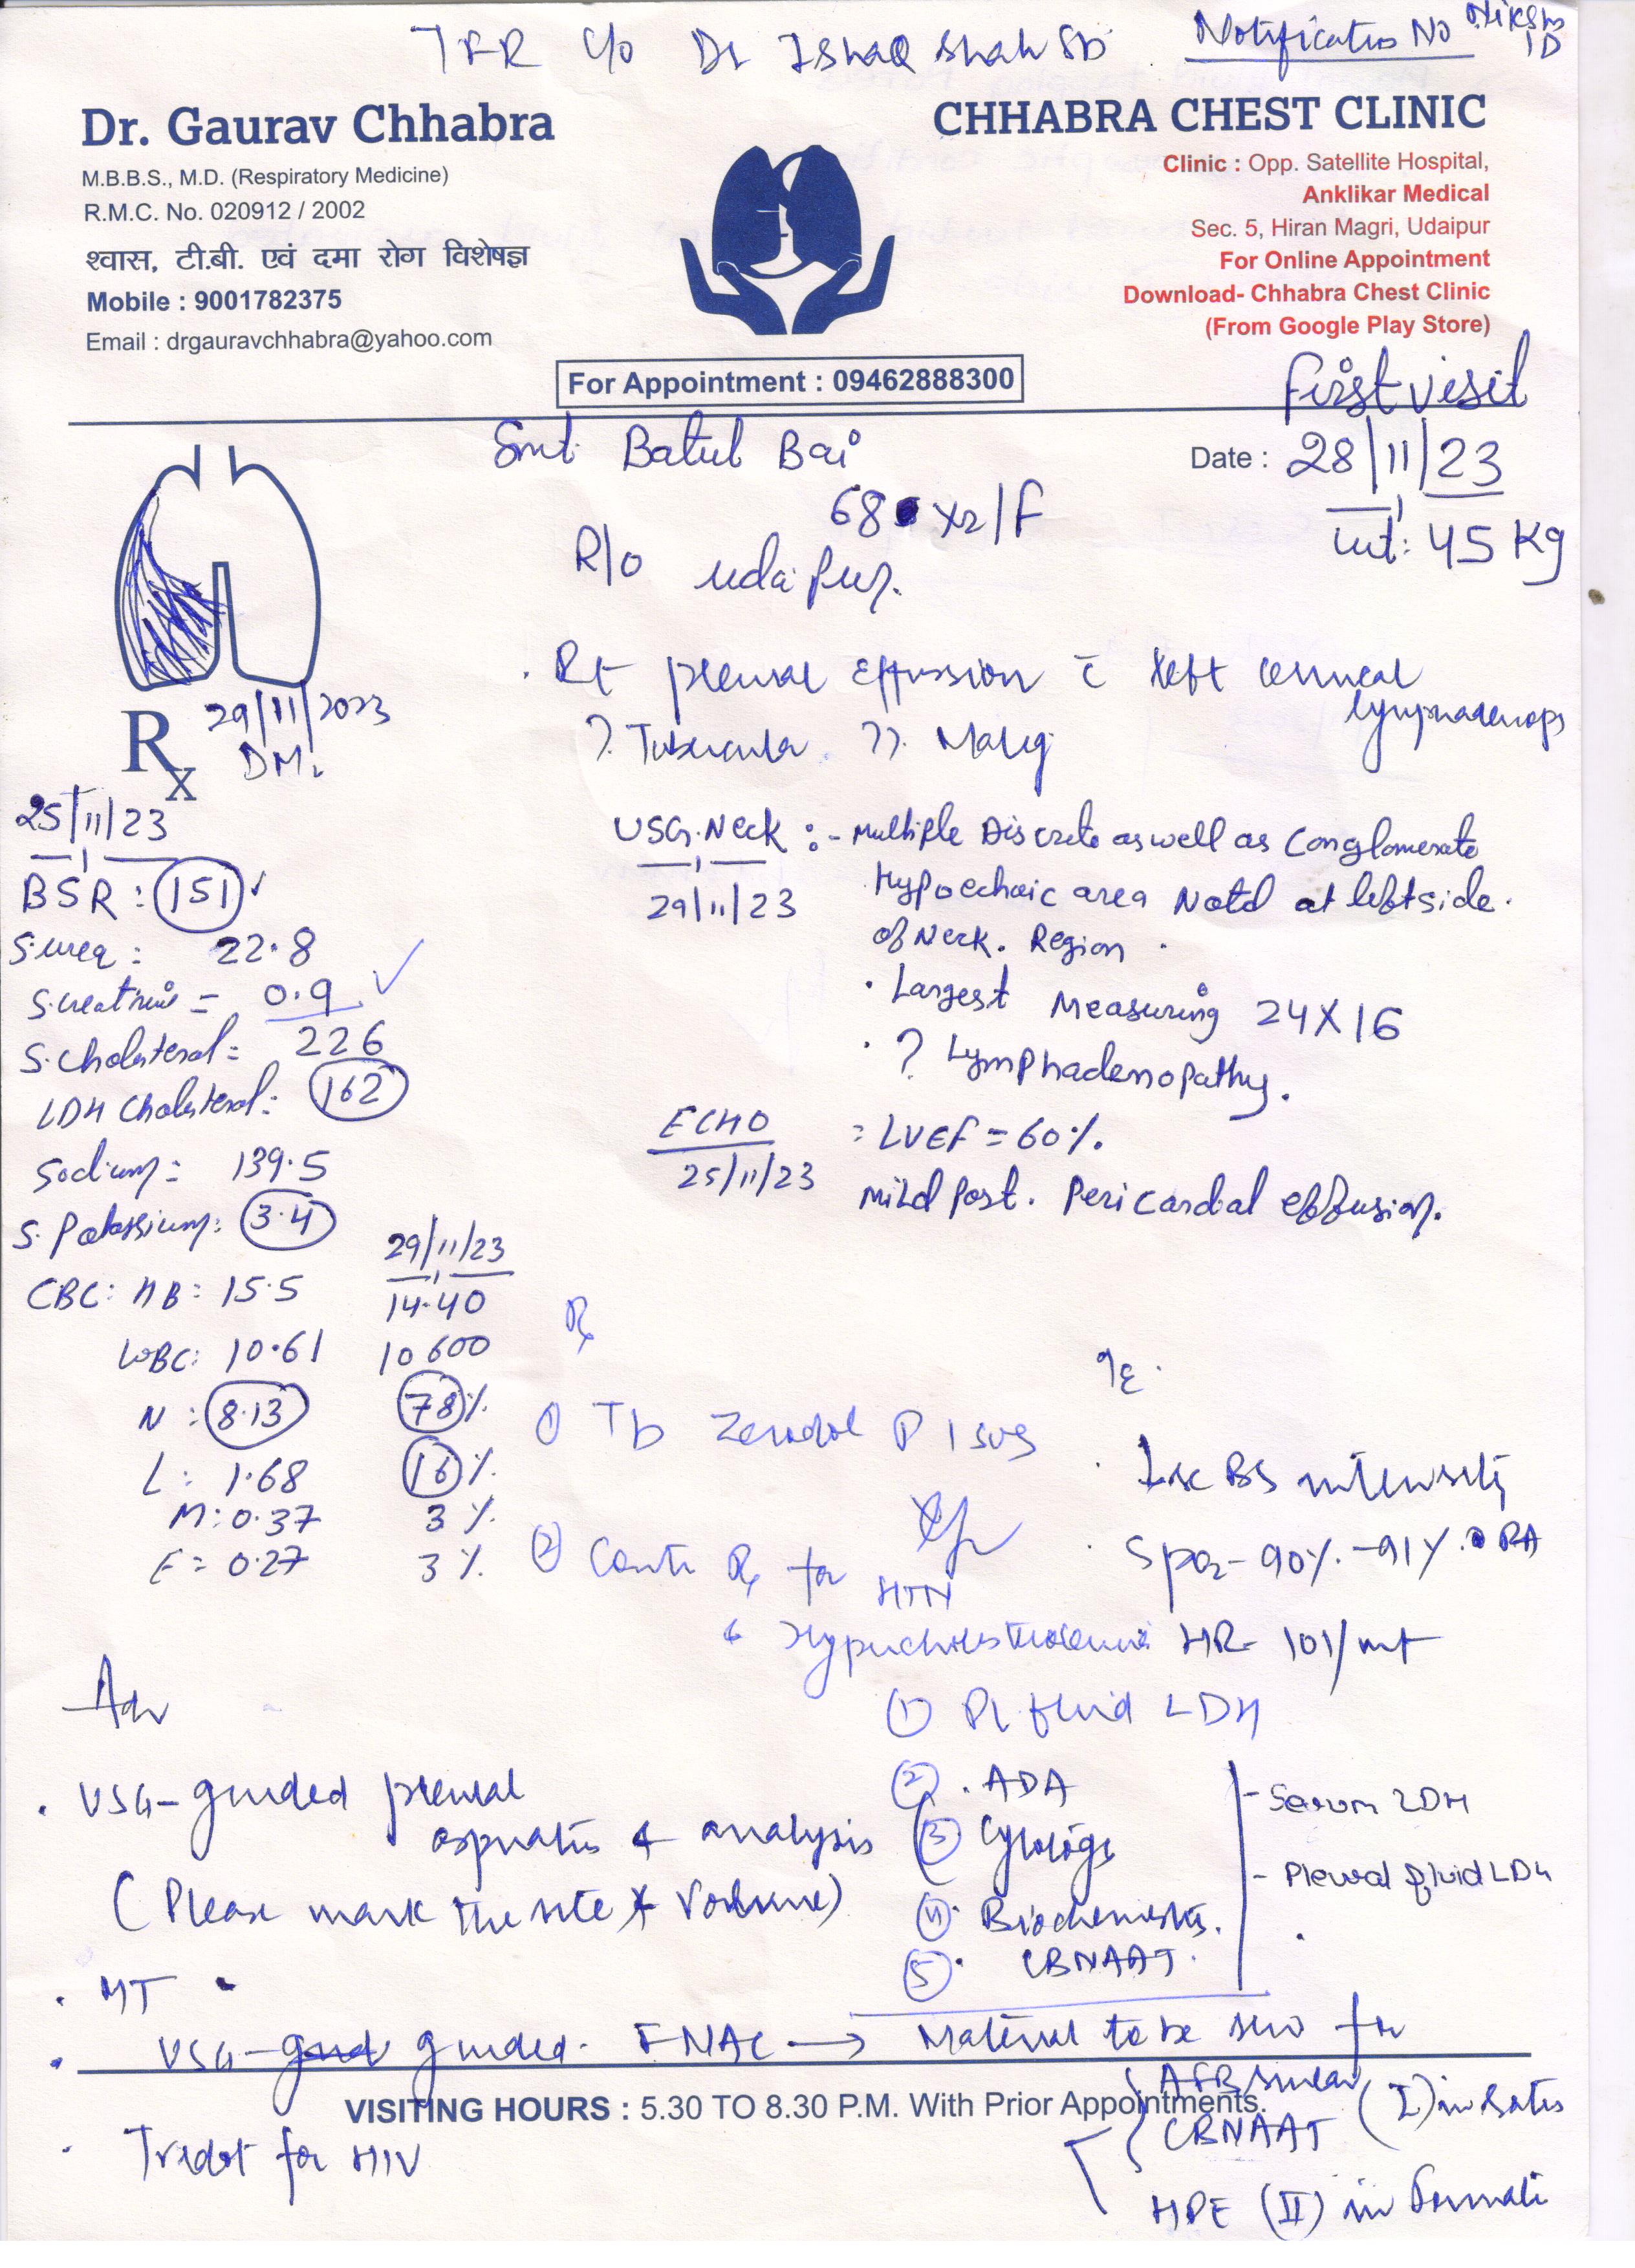 TRR C/o Dr Ishaq Shah Sb. Notification No Nikshay ID
Dr. Gaurav Chhabra
M.B.B.S., M.D. (Respiratory Medicine)
R.M.C. No. 020912 / 2002
श्वास, टी.बी. एवं दमा रोग विशेषज्ञ
Mobile : 9001782375
Email : drgauravchhabra@yahoo.com
CHHABRA CHEST CLINIC
Clinic : Opp. Satellite Hospital,
Anklikar Medical
Sec. 5, Hiran Magri, Udaipur
For Online Appointment
Download- Chhabra Chest Clinic
(From Google Play Store)
For Appointment : 09462888300
First visit
Smt. Batul Bai
Date : 28/11/23
68 Yr/F
wt: 45 Kg
R/o Udaipur.
. Rt pleural effussion c̄ left cervical
lymphadenop
? Tubercular. ??. Malig
Rx 29/11/2023
DM.
25/11/23
BSR : 151 ✓
S.urea : 22.8
S.creatinine = 0.9 ✓
S.Cholesterol = 226
LDH Cholesterol : 162
Sodium : 139.5
S. Potassium : 3.4
29/11/23
CBC : HB : 15.5 14.40
WBC : 10.61 10600
N : 8.13 78%
L : 1.68 16%.
M : 0.37 3%.
E = 0.27 3%.
USG. Neck :- Multiple Discrete as well as Conglomerate
29/11/23 Hypoechoic area Notd at left side.
of Neck. Region.
. Largest Measuring 24X16
. ? Lymphadenopathy.
ECHO : LVEF = 60%.
25/11/23 Mild Post. Pericardial effusion.
Rx
① Tb Zerodol P 1 SOS
② Conti Rx for HTN
& Hypercholesterolemia
O/E .
. ↓sc BS intensity
. SpO2 - 90%. - 91%. RA
HR - 101/mt
Adv
. USG - guided pleural
aspiration & analysis
(Please mark the site & Volume)
① Pl. fluid LDH
② . ADA
③ Cytology
④ . Biochemistry.
⑤ . CBNAAT.
- Serum LDH
- Pleural fluid LDH
. MT
. USG - guided. FNAC → Material to be sent for
AFB smear
CBNAAT (I) in Saline
HPE (II) in Formalin
VISITING HOURS : 5.30 TO 8.30 P.M. With Prior Appointments.
. Tridot for HIV